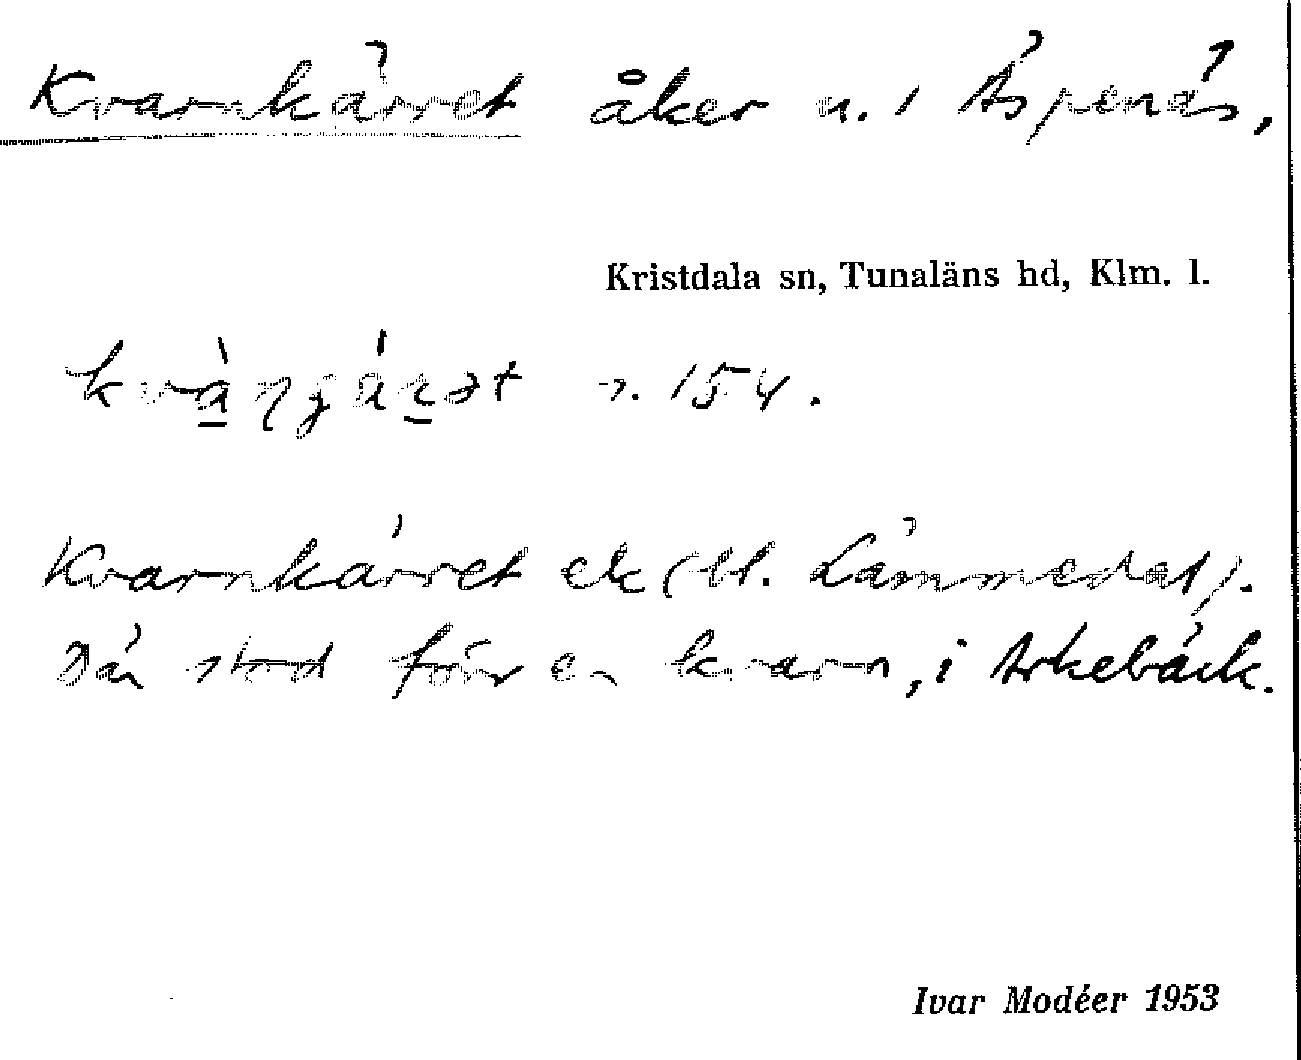 Kvarnkärret åker n. i Äspenäs,
Kristdala sn, Tunaläns hd, Klm. l.
154.
Kvarnkärret ek (bl. Lämmedal).
Där stod förr en kvarn, i Arkebäck.
Ivar Modéer 1953